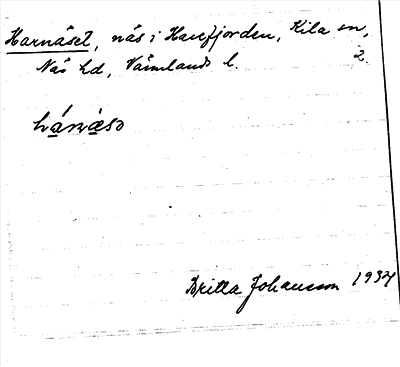 Harnäset, näs i Harefjorden, Kila sn,
Näs hd, Värmlands l. 2.
hárnäsə
Britta Johansson 1934